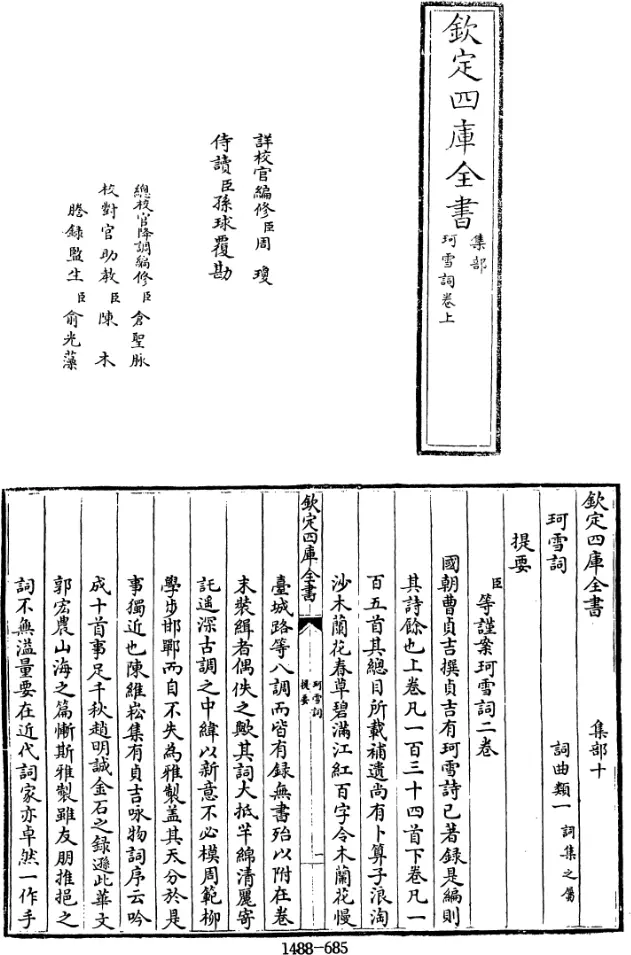 欽定四庫全書
集部
珂雪詞卷上
詳校官編修臣周瓊
侍讀臣孫球覆勘
總校官降調編修臣倉聖脉
校對官助教臣陳木
謄錄監生臣俞光藻
欽定四庫全書
集部十
珂雪詞
詞曲類一
詞集之屬
提要
臣等謹案珂雪詞二卷
國朝曹貞吉撰貞吉有珂雪詩已著録是編則
其詩餘也上卷凡一百三十四首下卷凡一
百五首其總目所載補遺尚有卜算子浪淘
沙木蘭花春草碧滿江紅百字令木蘭花慢
欽定四庫全書
珂雪詞
提要
一
臺城路等八調而皆有録無書殆以附在卷
末裝緝者偶佚之歟其詞大抵芊綿清麗寄
託遥深古調之中緯以新意不必模周範柳
學步邯鄲而自不失為雅製盖其天分於是
事獨近也陳維崧集有貞吉咏物詞序云吟
成十首事足千秋趙明誠金石之錄遜此華文
郭宏農山海之篇慚斯雅製雖友朋推挹之
詞不無溢量要在近代詞家亦卓然一作手
1488-685